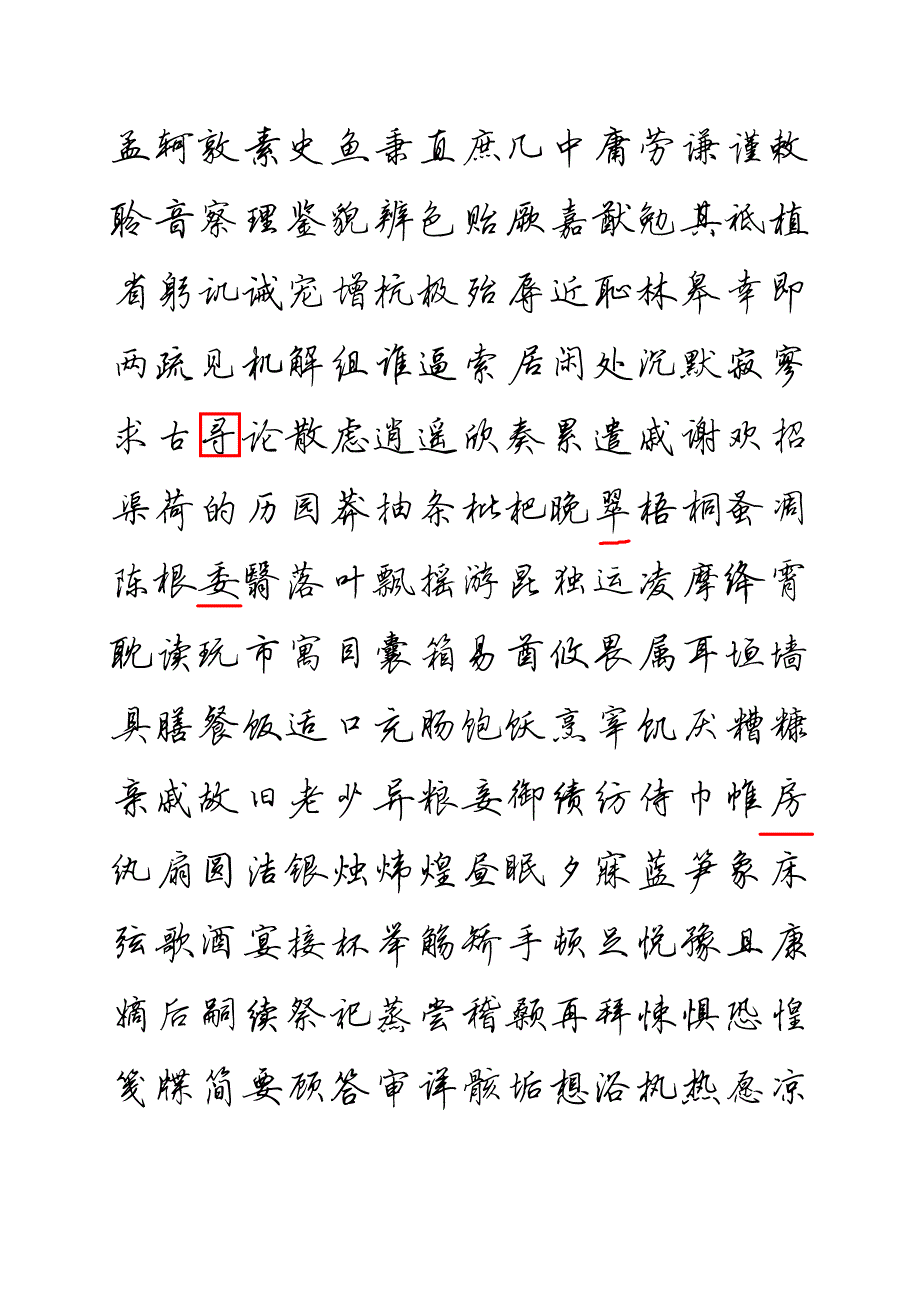 孟轲敦素史鱼秉直庶几中庸劳谦谨敕
聆音察理鉴貌辨色贻厥嘉猷勉其祗植
省躬讥诫宠增抗极殆辱近耻林皋幸即
两疏见机解组谁逼索居闲处沉默寂寥
求古寻论散虑逍遥欣奏累遣戚谢欢招
渠荷的历园莽抽条枇杷晚翠梧桐蚤凋
陈根委翳落叶飘摇游昆独运凌摩绛霄
耽读玩市寓目囊箱易酋攸畏属耳垣墙
具膳餐饭适口充肠饱饫烹宰饥厌糟糠
亲戚故旧老少异粮妾御绩纺侍巾帷房
纨扇圆洁银烛炜煌昼眠夕寐蓝笋象床
弦歌酒宴接杯举觞矫手顿足悦豫且康
嫡后嗣续祭祀蒸尝稽颡再拜悚惧恐惶
笺牒简要顾答审详骸垢想浴执热愿凉